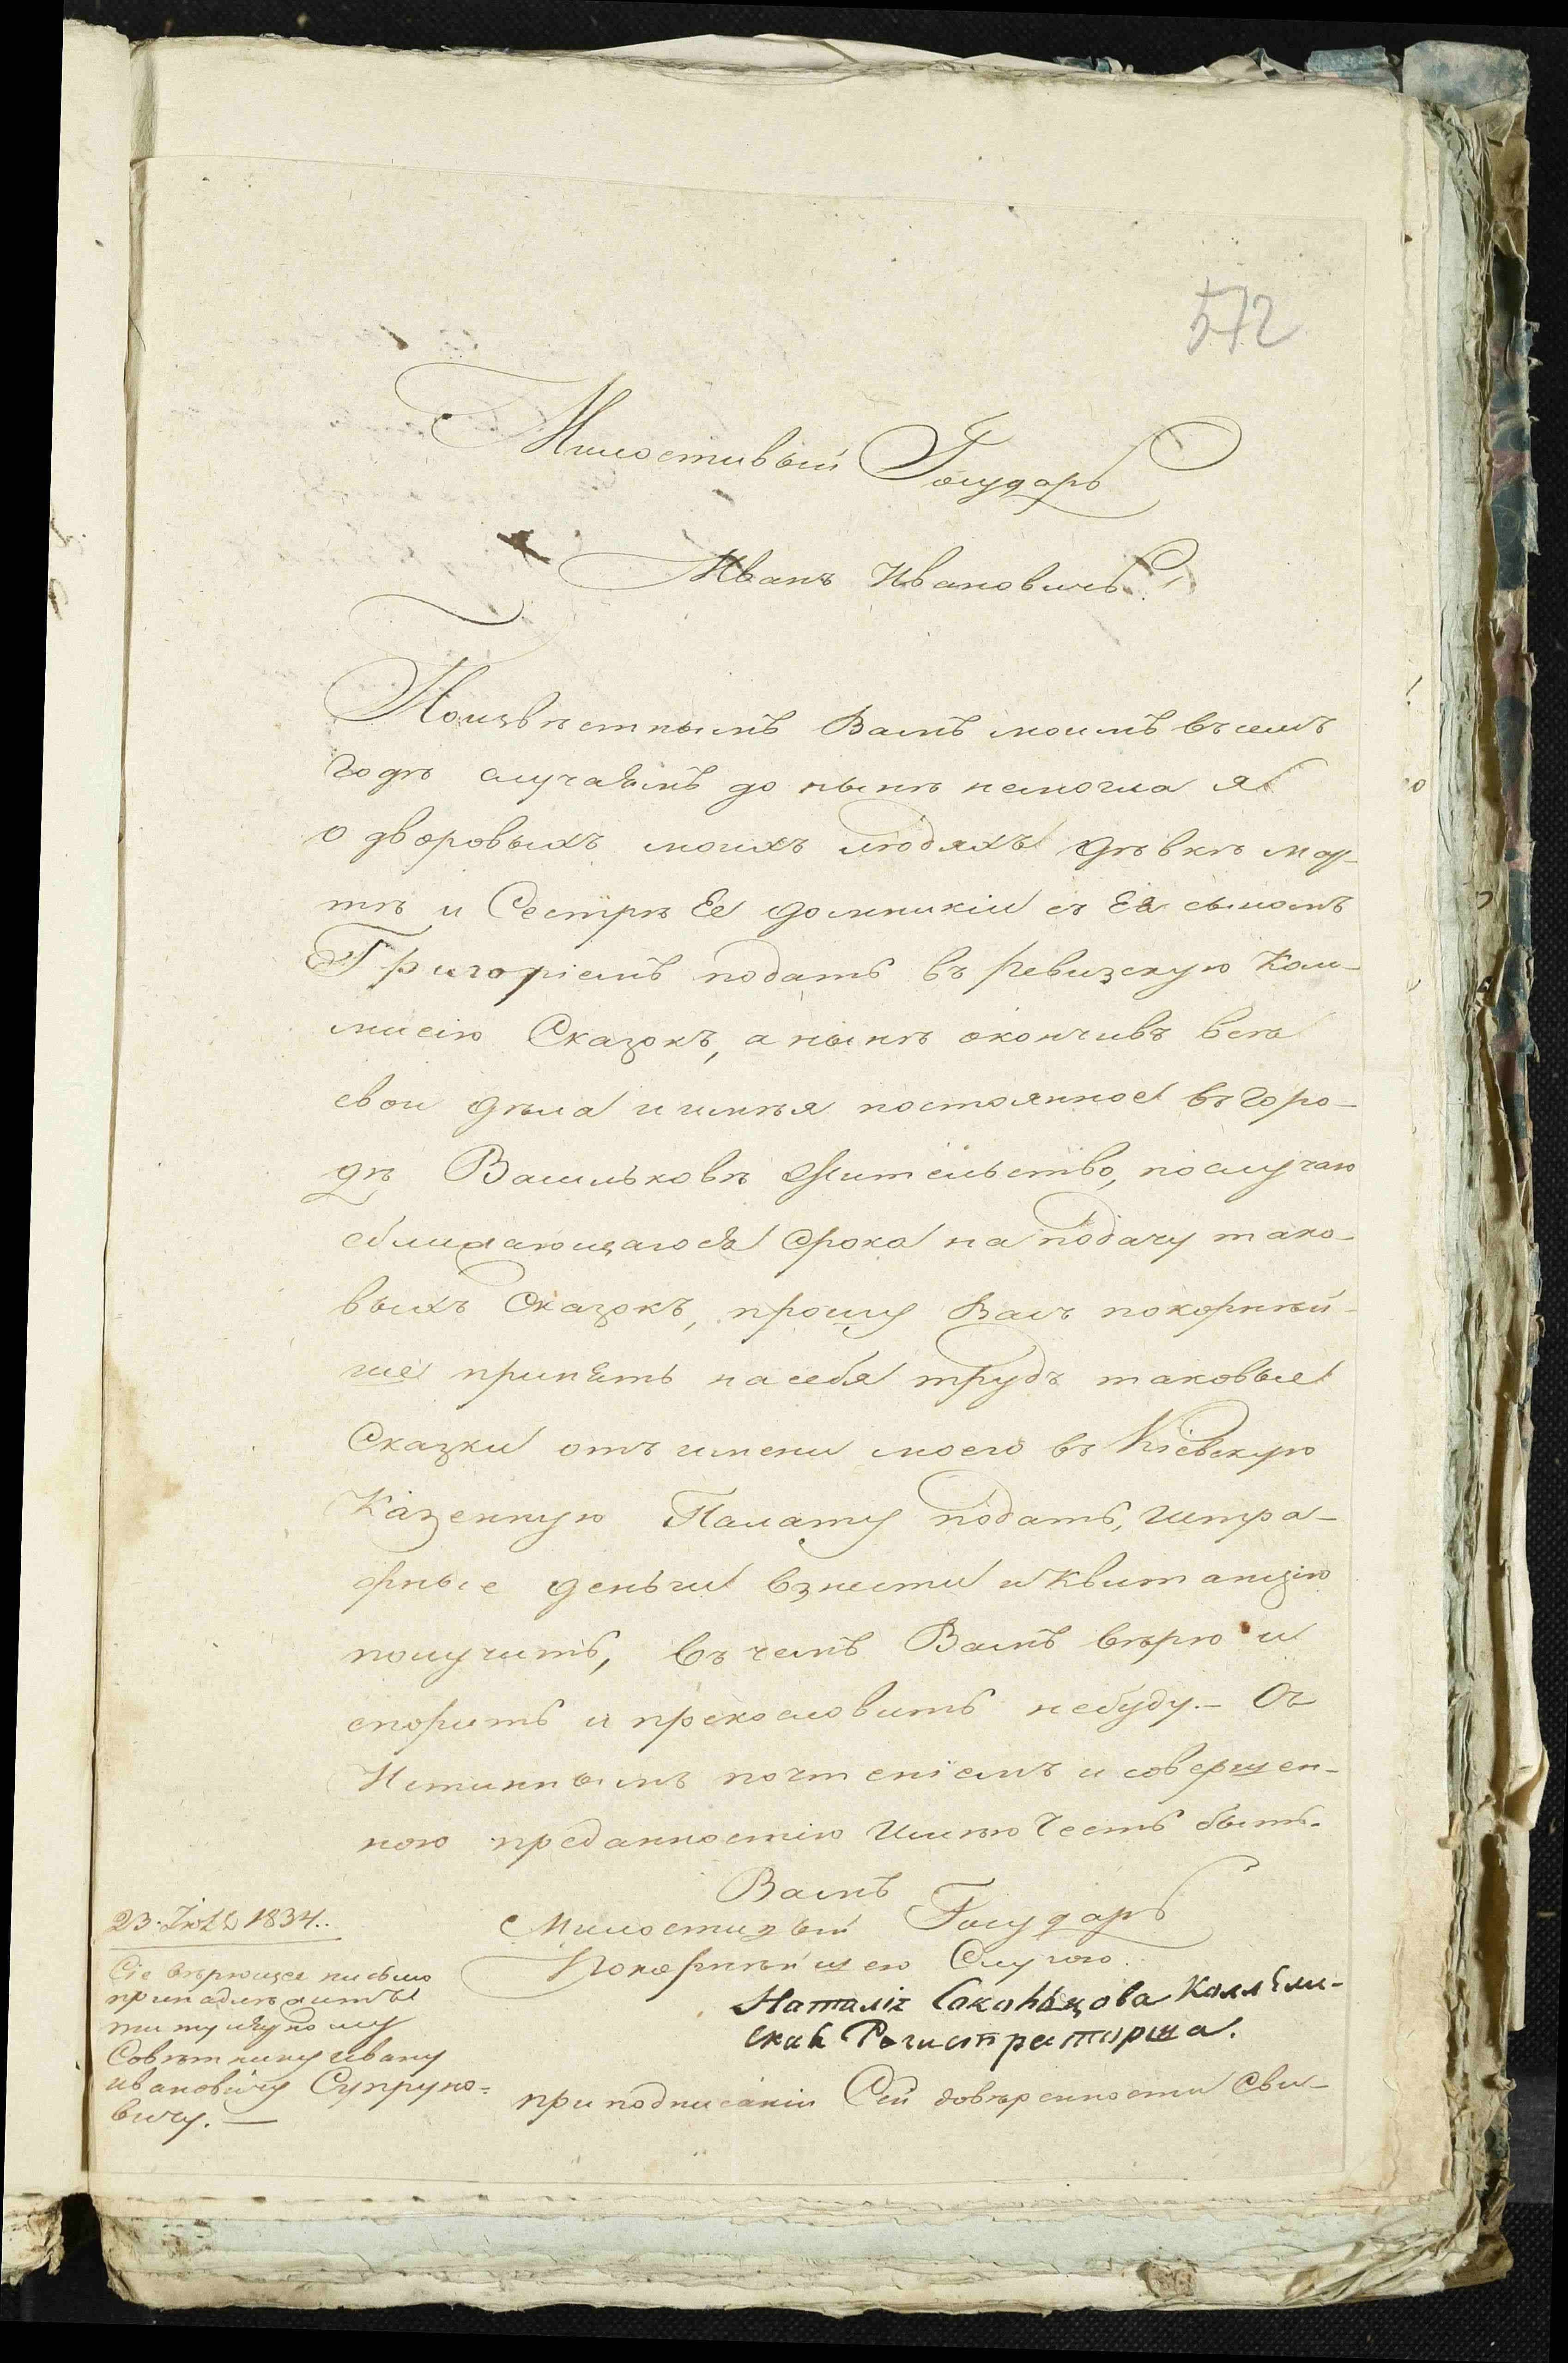 572
Милостивый Государь
Иванъ Ивановичъ!
Поизвѣстнымъ Вамъ моимъ въ семъ
годѣ случаямъ до нынѣ немогла я
о дворовыхъ моихъ людяхъ дѣвкѣ мар-
тѣ и Сестрѣ Ее домникіи съ Ея сыномъ
Григоріемъ подать въ Ревизскую Ком-
мисію Сказокъ, а нынѣ окончивъ всѣ
свои дѣла и имѣя постоянное въ горо-
дѣ Васильковѣ Жительство, послучаю
сближающагося срока на подачу тако-
выхъ Сказокъ, прошу Васъ покорнѣй-
ше принять на себя трудъ таковые
Сказки отъ имени моего въ Кіевскую
Казенную Палату подать, штра-
фные деньги взнести и квитанцію
получить, въ чемъ Вамъ вѣрю и
спорить и прекословить небуду. – Съ
Истиннымъ почтеніемъ и совершен-
ною преданностію Имѣю Честь быть.
Вамъ
Милостивый Государь
Покорнѣйшею Слугою.
Наталія Коллежи-
ская Регистраторша.
при подписаніи Сей довѣренности Сви-
23. Іюля 1834.
Сіе вѣрющее письмо
принадлежитъ
титулярному
Совѣтнику ивану
ивановичу Супруно-
вичу. —